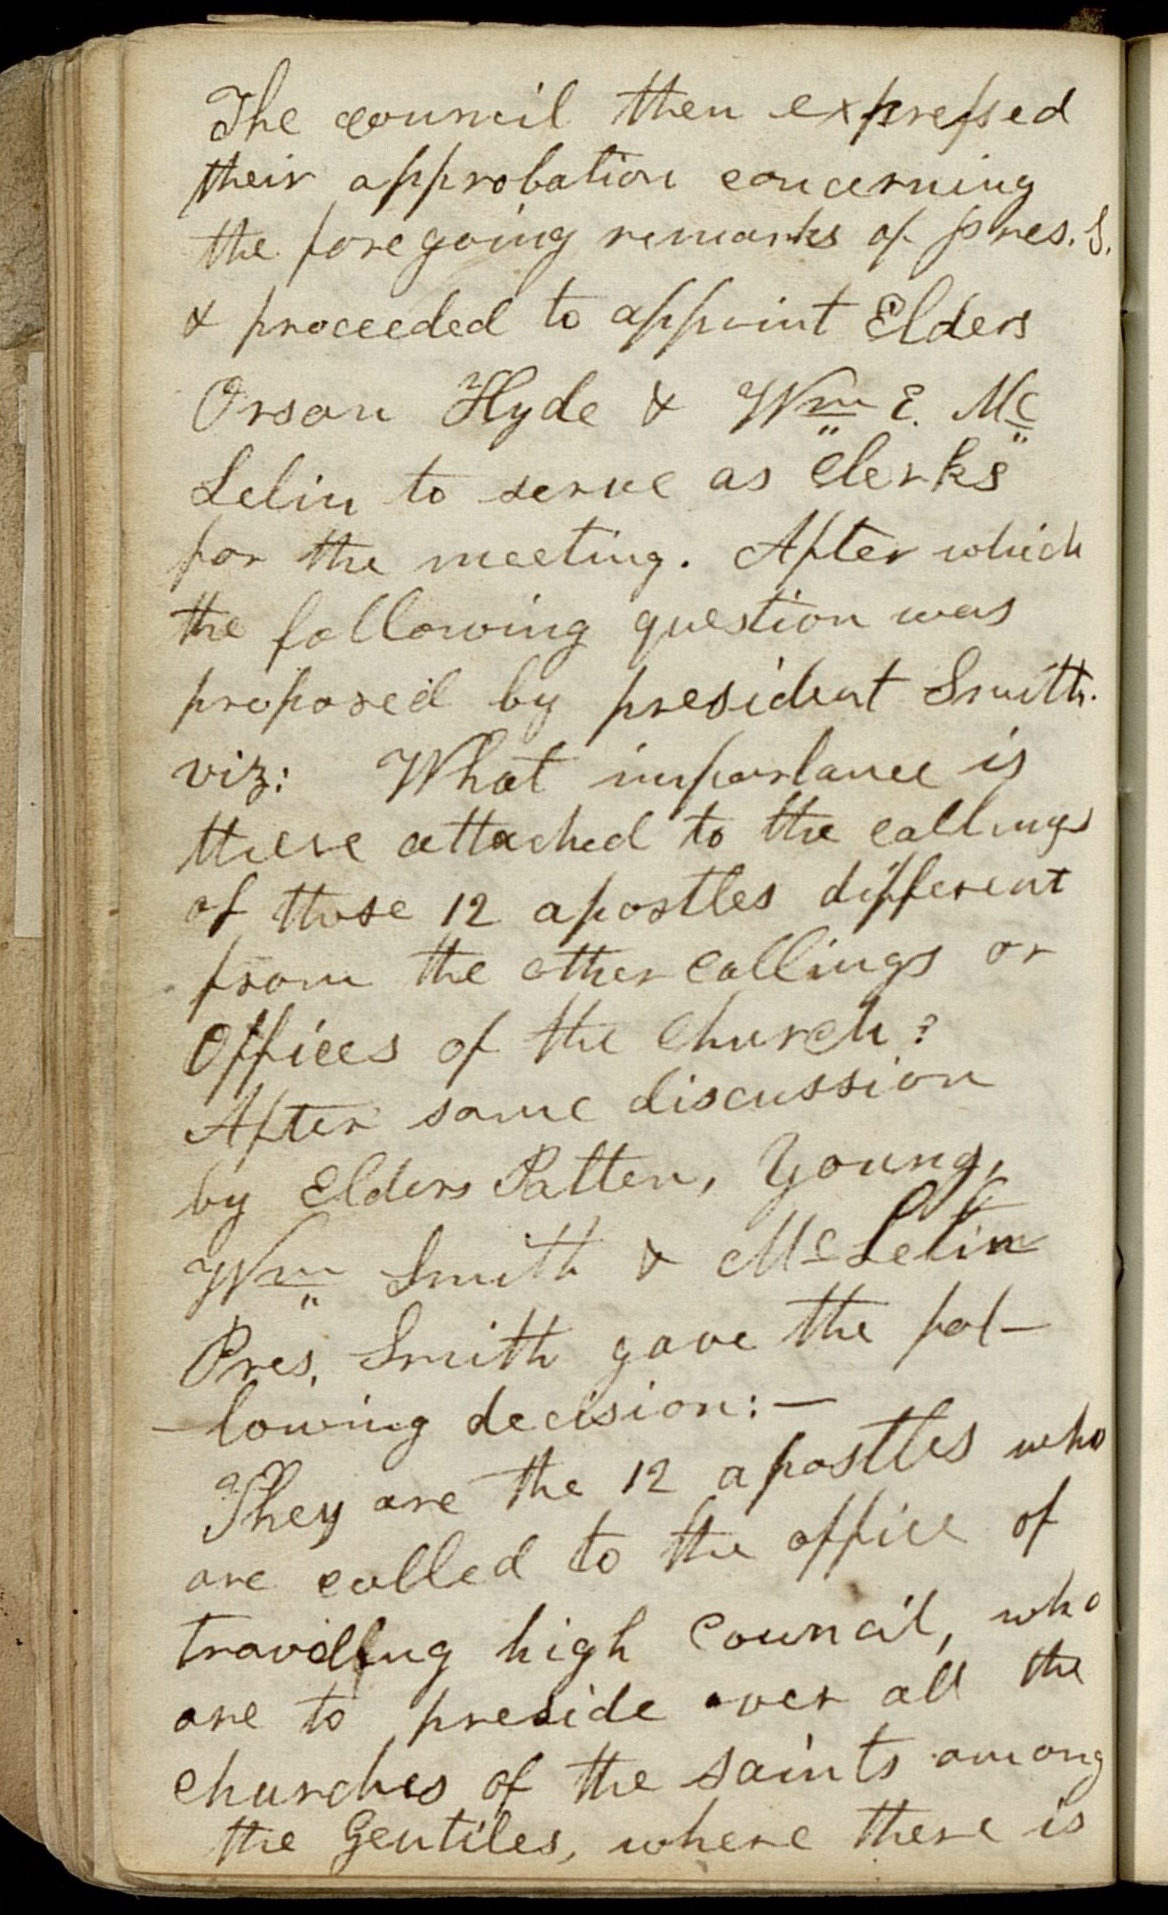 The council then expressed
their approbation concerning
the foregoing remarks of Pres. S.
& proceeded to appoint Elders
Orson Hyde & Wm E. Mc
Lelin to serve as Clerks
for the meeting. After which
the following question was
proposed by president Smith.
viz: What importance is
there attached to the callings
of those 12 apostles different
from the other callings or
Offices of the Church?
After some discussion
by Elders Patten, Young,
Wm Smith & McLelin
Pres. Smith gave the fol–
–lowing decision:—
They are the 12 apostles who
are called to the office of
travelling high council, who
are to preside over all the
churches of the saints among
the Gentiles, where there is